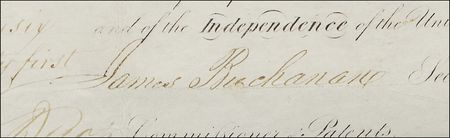 six and of the Independence of the Uni
first James Buchanan Sec
Commissioner of Patents.